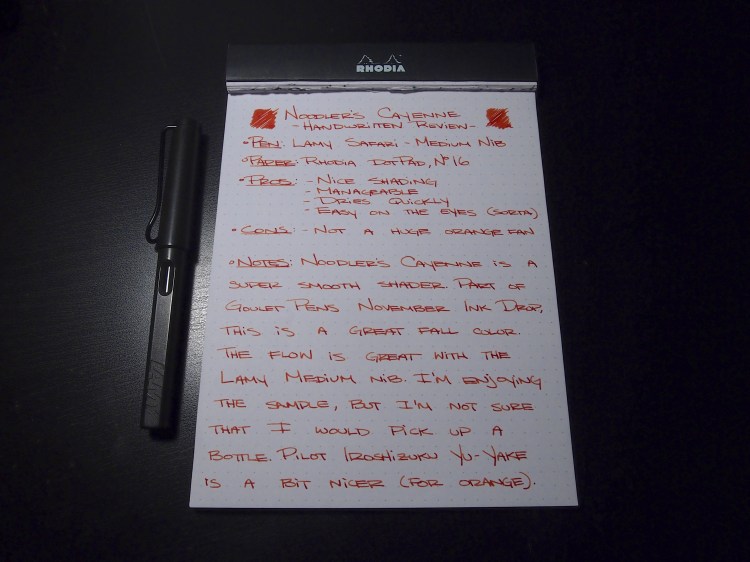 RHODIA
NOODLER'S CAYENNE
- HANDWRITTEN REVIEW -
• PEN: LAMY SAFARI - MEDIUM NIB
• PAPER: RHODIA DOTPAD, Nº16
• PROS: - NICE SHADING
- MANAGEABLE
- DRIES QUICKLY
- EASY ON THE EYES (SORTA)
• CONS: - NOT A HUGE ORANGE FAN
• NOTES: NOODLER'S CAYENNE IS A
SUPER SMOOTH SHADER. PART OF
GOULET PENS NOVEMBER INK DROP,
THIS IS A GREAT FALL COLOR.
THE FLOW IS GREAT WITH THE
LAMY MEDIUM NIB. I'M ENJOYING
THE SAMPLE, BUT I'M NOT SURE
THAT I WOULD PICK UP A
BOTTLE. PILOT IROSHIZUKU YU-YAKE
IS A BIT NICER (FOR ORANGE).